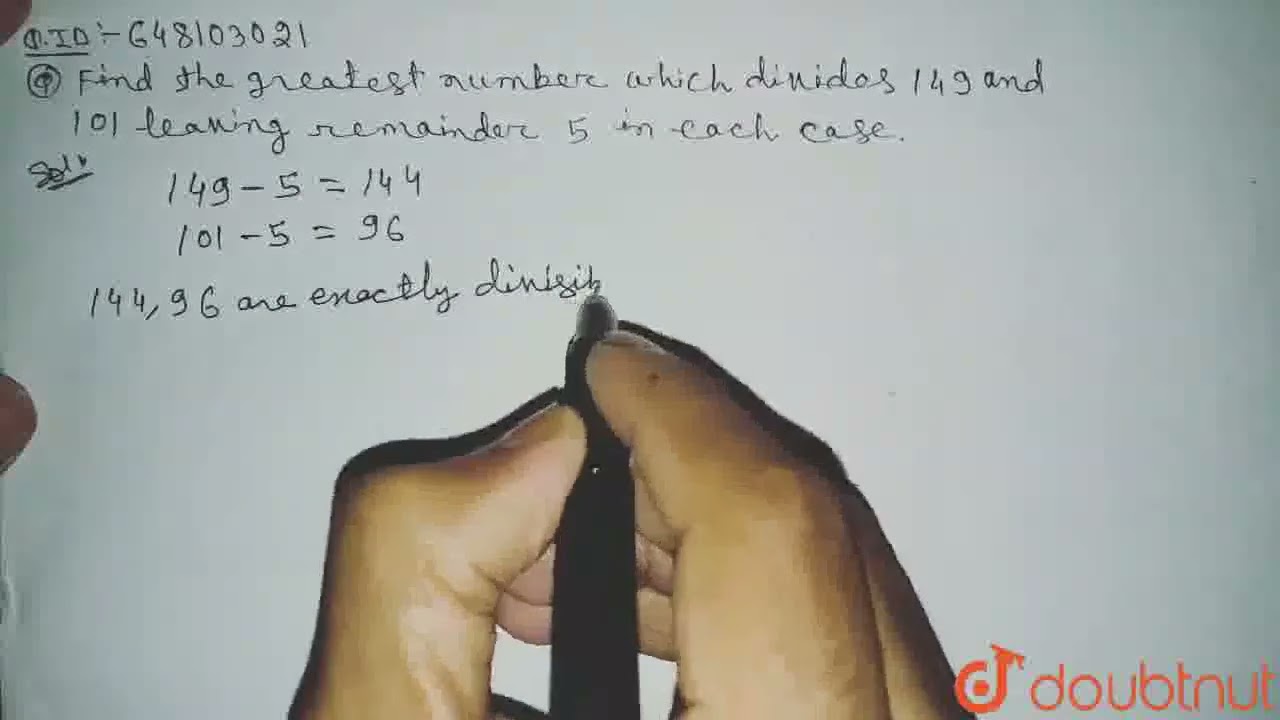 Q.ID :- 648103021
Q Find the greatest number which divides 149 and
101 leaving remainder 5 in each case.
Sol:
149 - 5 = 144
101 - 5 = 96
144, 96 are exactly divisib
doubtnut